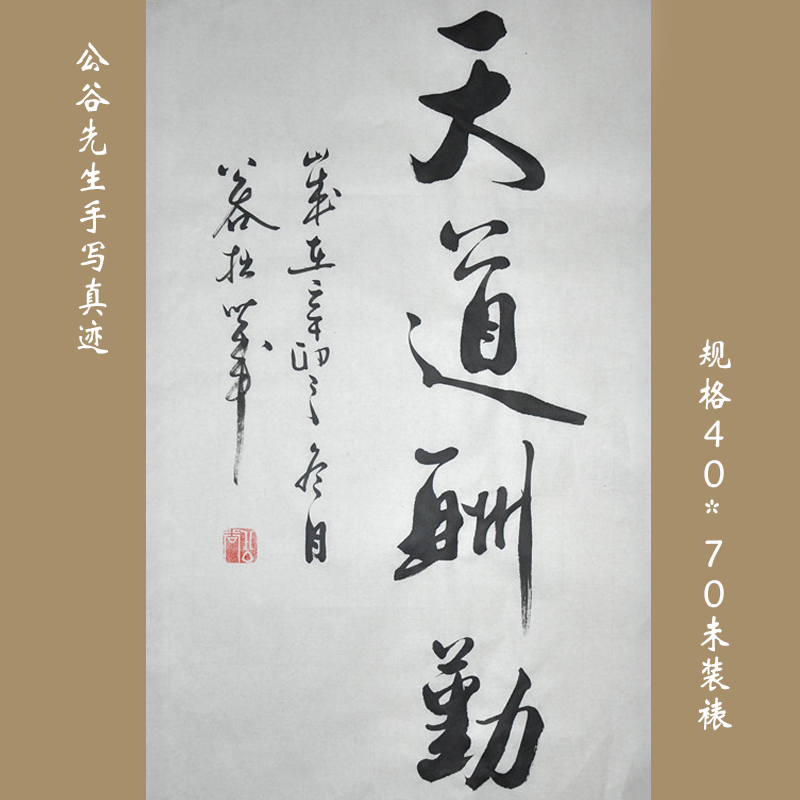 公谷先生手写真迹
天道酬勤
歲在辛卯之冬月
公谷拙筆
规格40*70未装裱